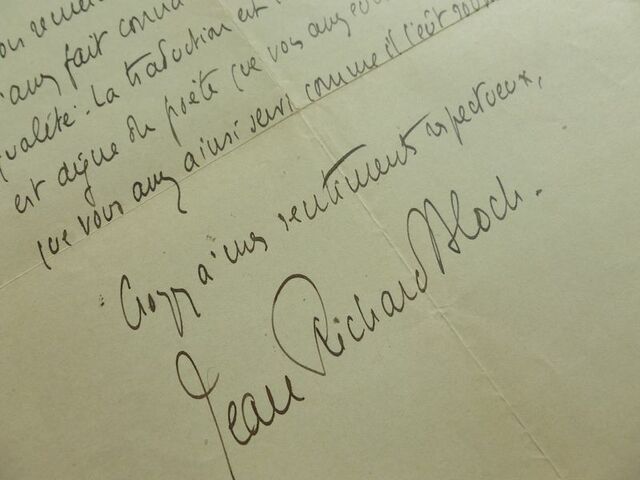 fait connaî
qualité. La traduction est
est digne du poète que vous avez
que vous avez ainsi servi comme il l'eût sou
Croyez à mes sentiments respectueux,
Jean Richard Bloch.